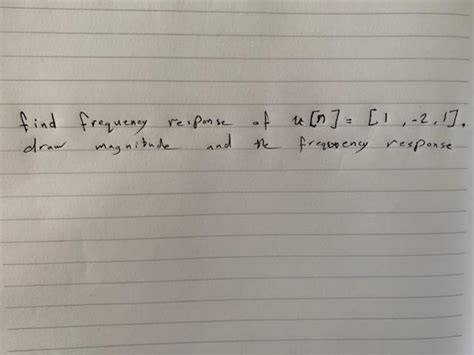 find frequency response of u[n] = [1, -2, 1].
draw magnitude and the frequency response